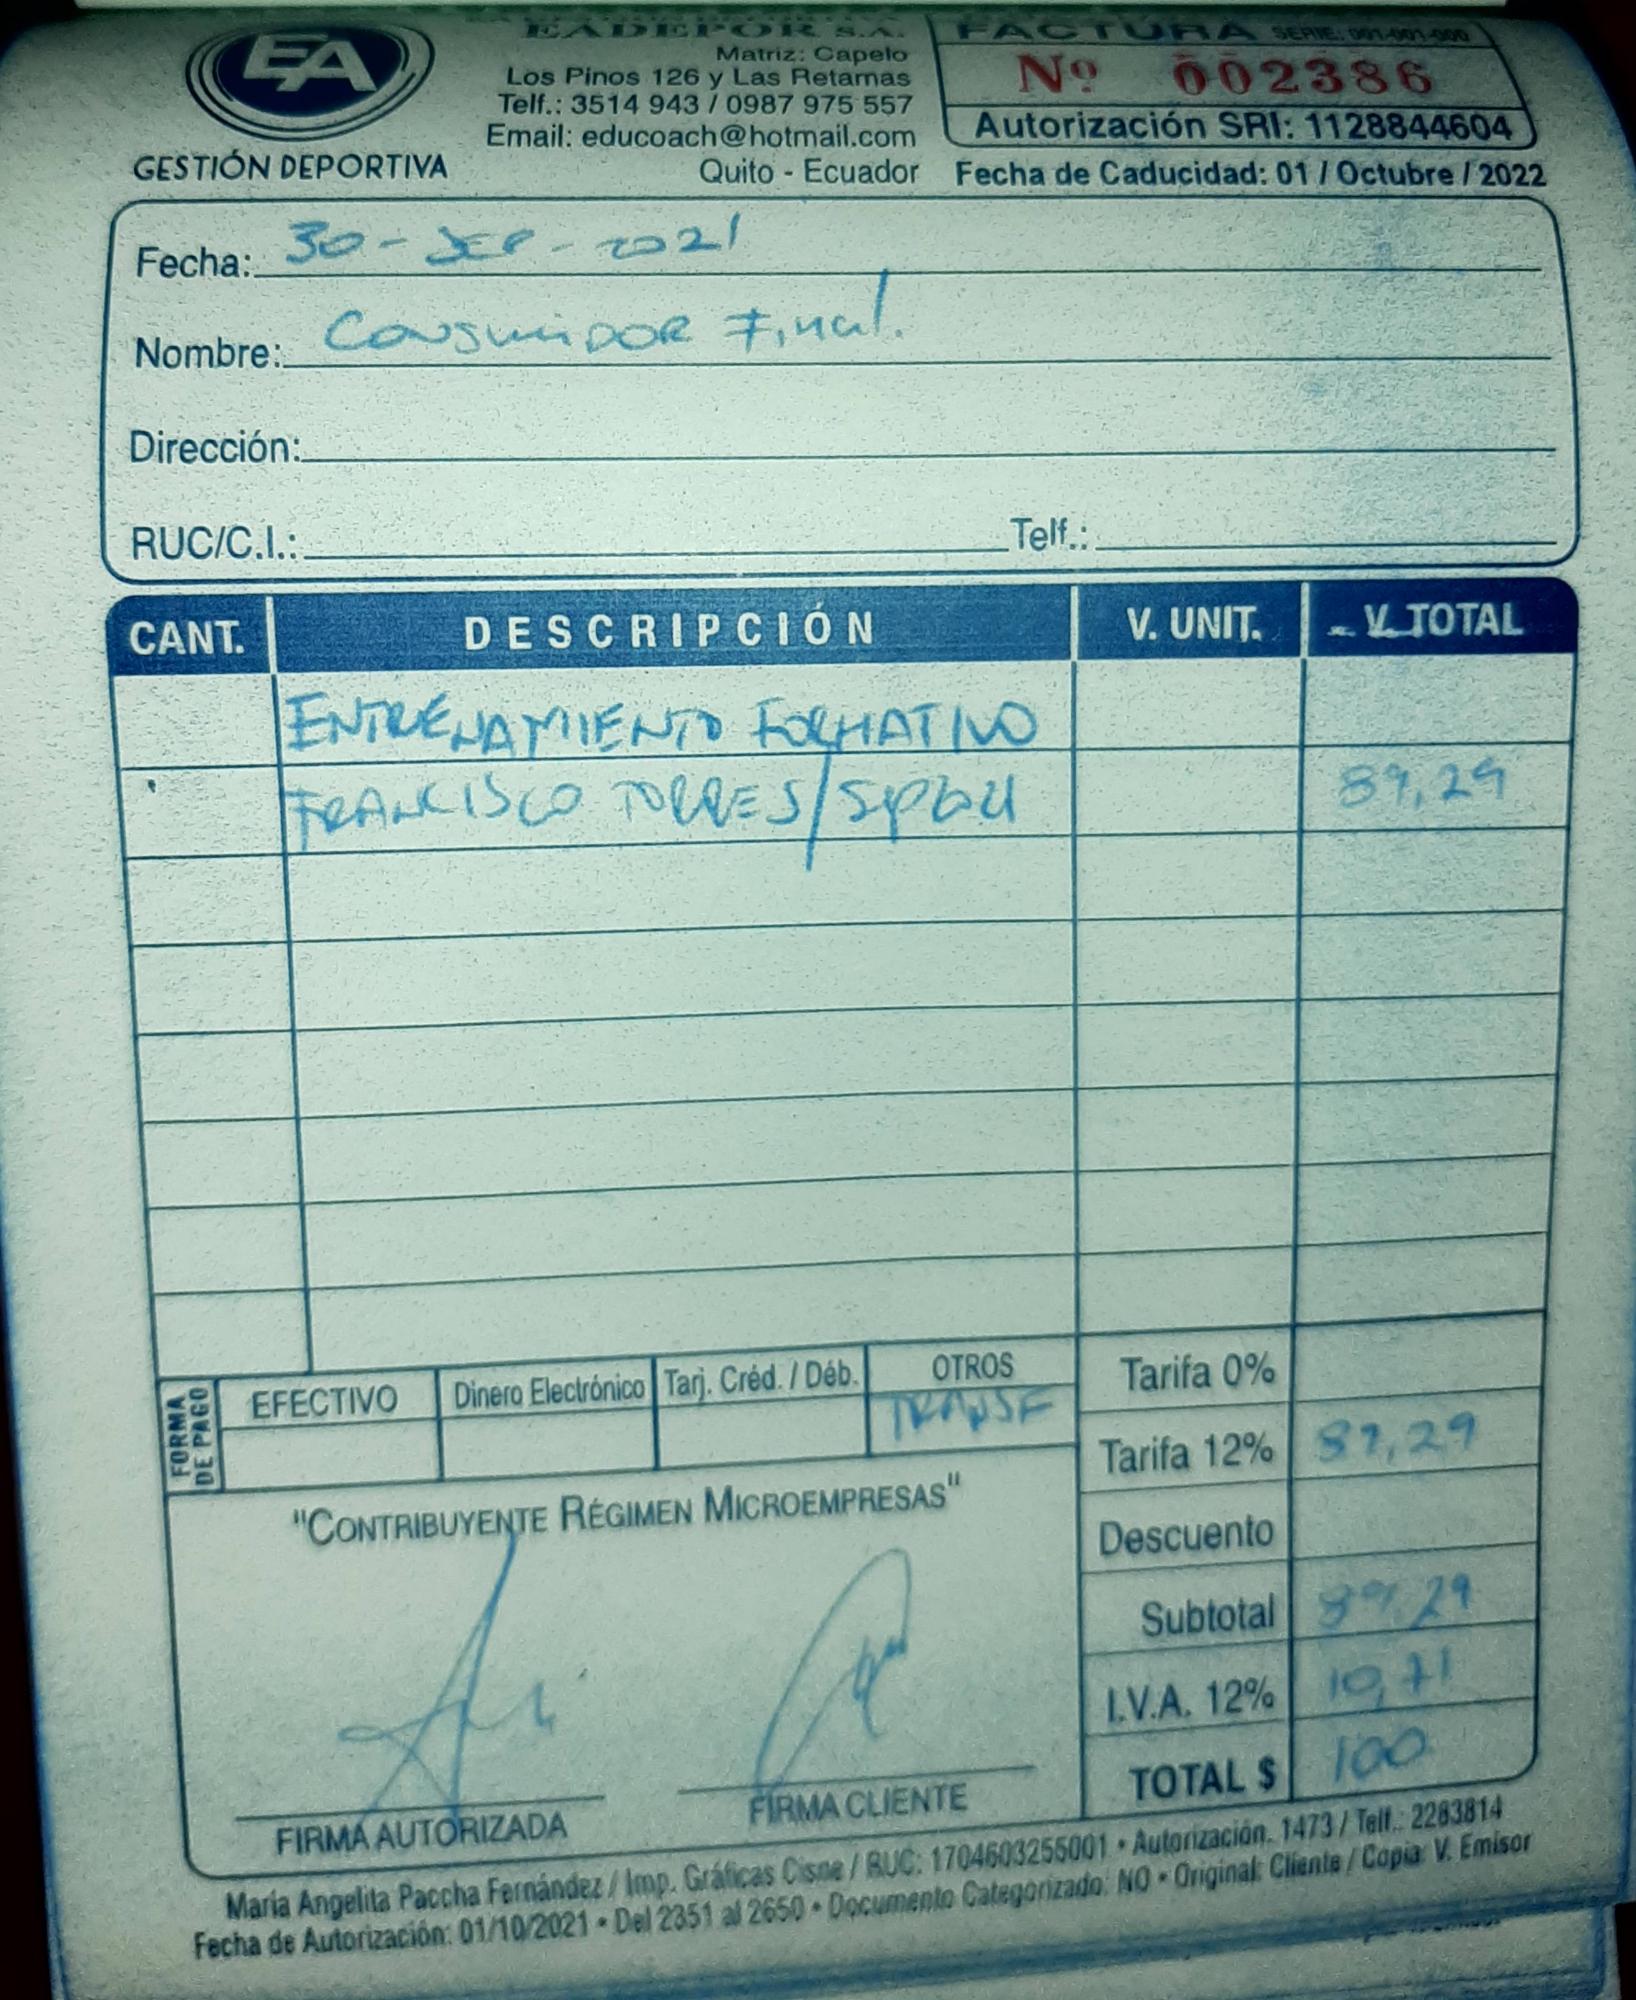 EA
GESTIÓN DEPORTIVA
EADEPOR S.A.
Matriz: Capelo
Los Pinos 126 y Las Retamas
Telf.: 3514 943 / 0987 975 557
Email: educoach@hotmail.com
Quito - Ecuador
FACTURA SERIE: 001-001-000
Nº 002386
Autorización SRI: 1128844604
Fecha de Caducidad: 01 / Octubre / 2022
Fecha: 30 - SEP - 2021
Nombre: Consumidor Final.
Dirección:
RUC/C.I.: Telf.:
CANT. DESCRIPCIÓN V. UNIT. V. TOTAL
ENTRENAMIENTO FORMATIVO
FRANCISCO TORRES / 89,29
FORMA DE PAGO
EFECTIVO Dinero Electrónico Tarj. Créd. / Déb. OTROS
TRANSF
Tarifa 0%
Tarifa 12% 89,29
Descuento
Subtotal 89,29
I.V.A. 12% 10,71
TOTAL $ 100
"CONTRIBUYENTE RÉGIMEN MICROEMPRESAS"
FIRMA AUTORIZADA FIRMA CLIENTE
María Angelita Paccha Fernández / Imp. Gráficas Cisne / RUC: 1704603255001 • Autorización. 1473 / Telf.: 2283814
Fecha de Autorización: 01/10/2021 • Del 2351 al 2650 • Documento Categorizado: NO • Original: Cliente / Copia: V. Emisor